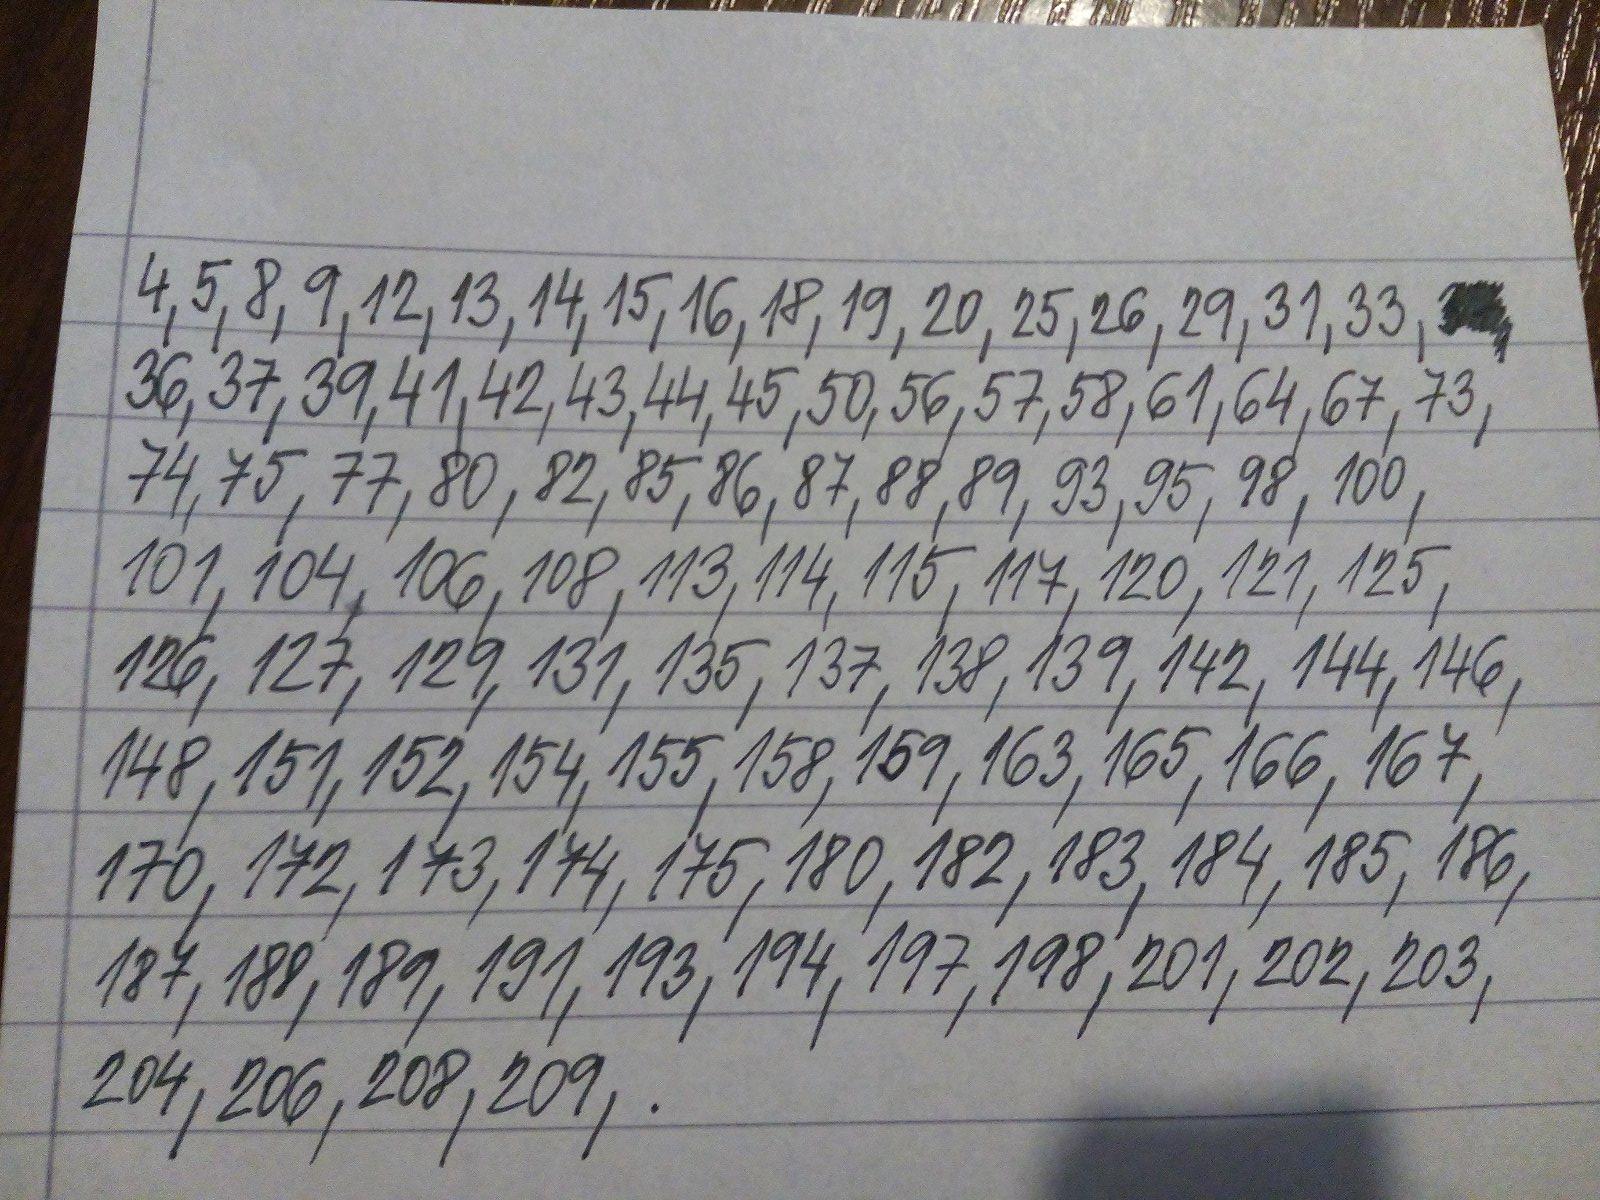 4, 5, 8, 9, 12, 13, 14, 15, 16, 18, 19, 20, 25, 26, 29, 31, 33,
36, 37, 39, 41, 42, 43, 44, 45, 50, 56, 57, 58, 61, 64, 67, 73,
74, 75, 77, 80, 82, 85, 86, 87, 88, 89, 93, 95, 98, 100,
101, 104, 106, 108, 113, 114, 115, 117, 120, 121, 125,
126, 127, 129, 131, 135, 137, 138, 139, 142, 144, 146,
148, 151, 152, 154, 155, 158, 159, 163, 165, 166, 167,
170, 172, 173, 174, 175, 180, 182, 183, 184, 185, 186,
187, 188, 189, 191, 193, 194, 197, 198, 201, 202, 203,
204, 206, 208, 209, .